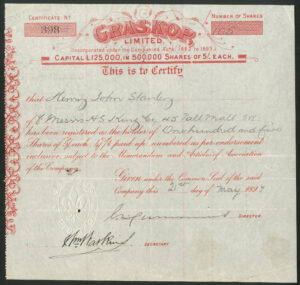 CERTIFICATE No
898
NUMBER OF SHARES
105
GRASKOP
LIMITED.
Incorporated under the Companies Acts, 1862 to 1893
CAPITAL £125,000, IN 500,000 SHARES OF 5/- EACH.
This is to Certify
that Henry John Stanley
of Messrs H.S. King & Co, 45 Pall Mall SW.
has been registered as the holder of One hundred and five
Shares of 5/- each, paid up, numbered as per endorsement
inclusive, subject to the Memorandum and Articles of Association
of the Company.
Given under the Common Seal of the said
Company this 21st day of May 1897
DIRECTOR.
SECRETARY